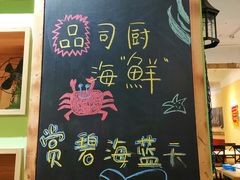 品司厨
海"鲜"
赏碧海蓝天